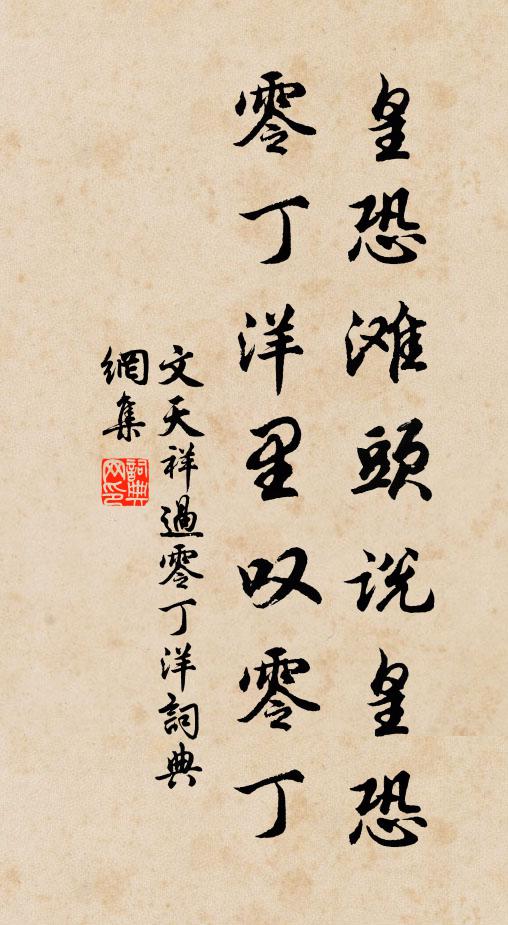 皇恐滩頭说皇恐
零丁洋里叹零丁
文天祥過零丁洋詞典
網集
詞典
网印